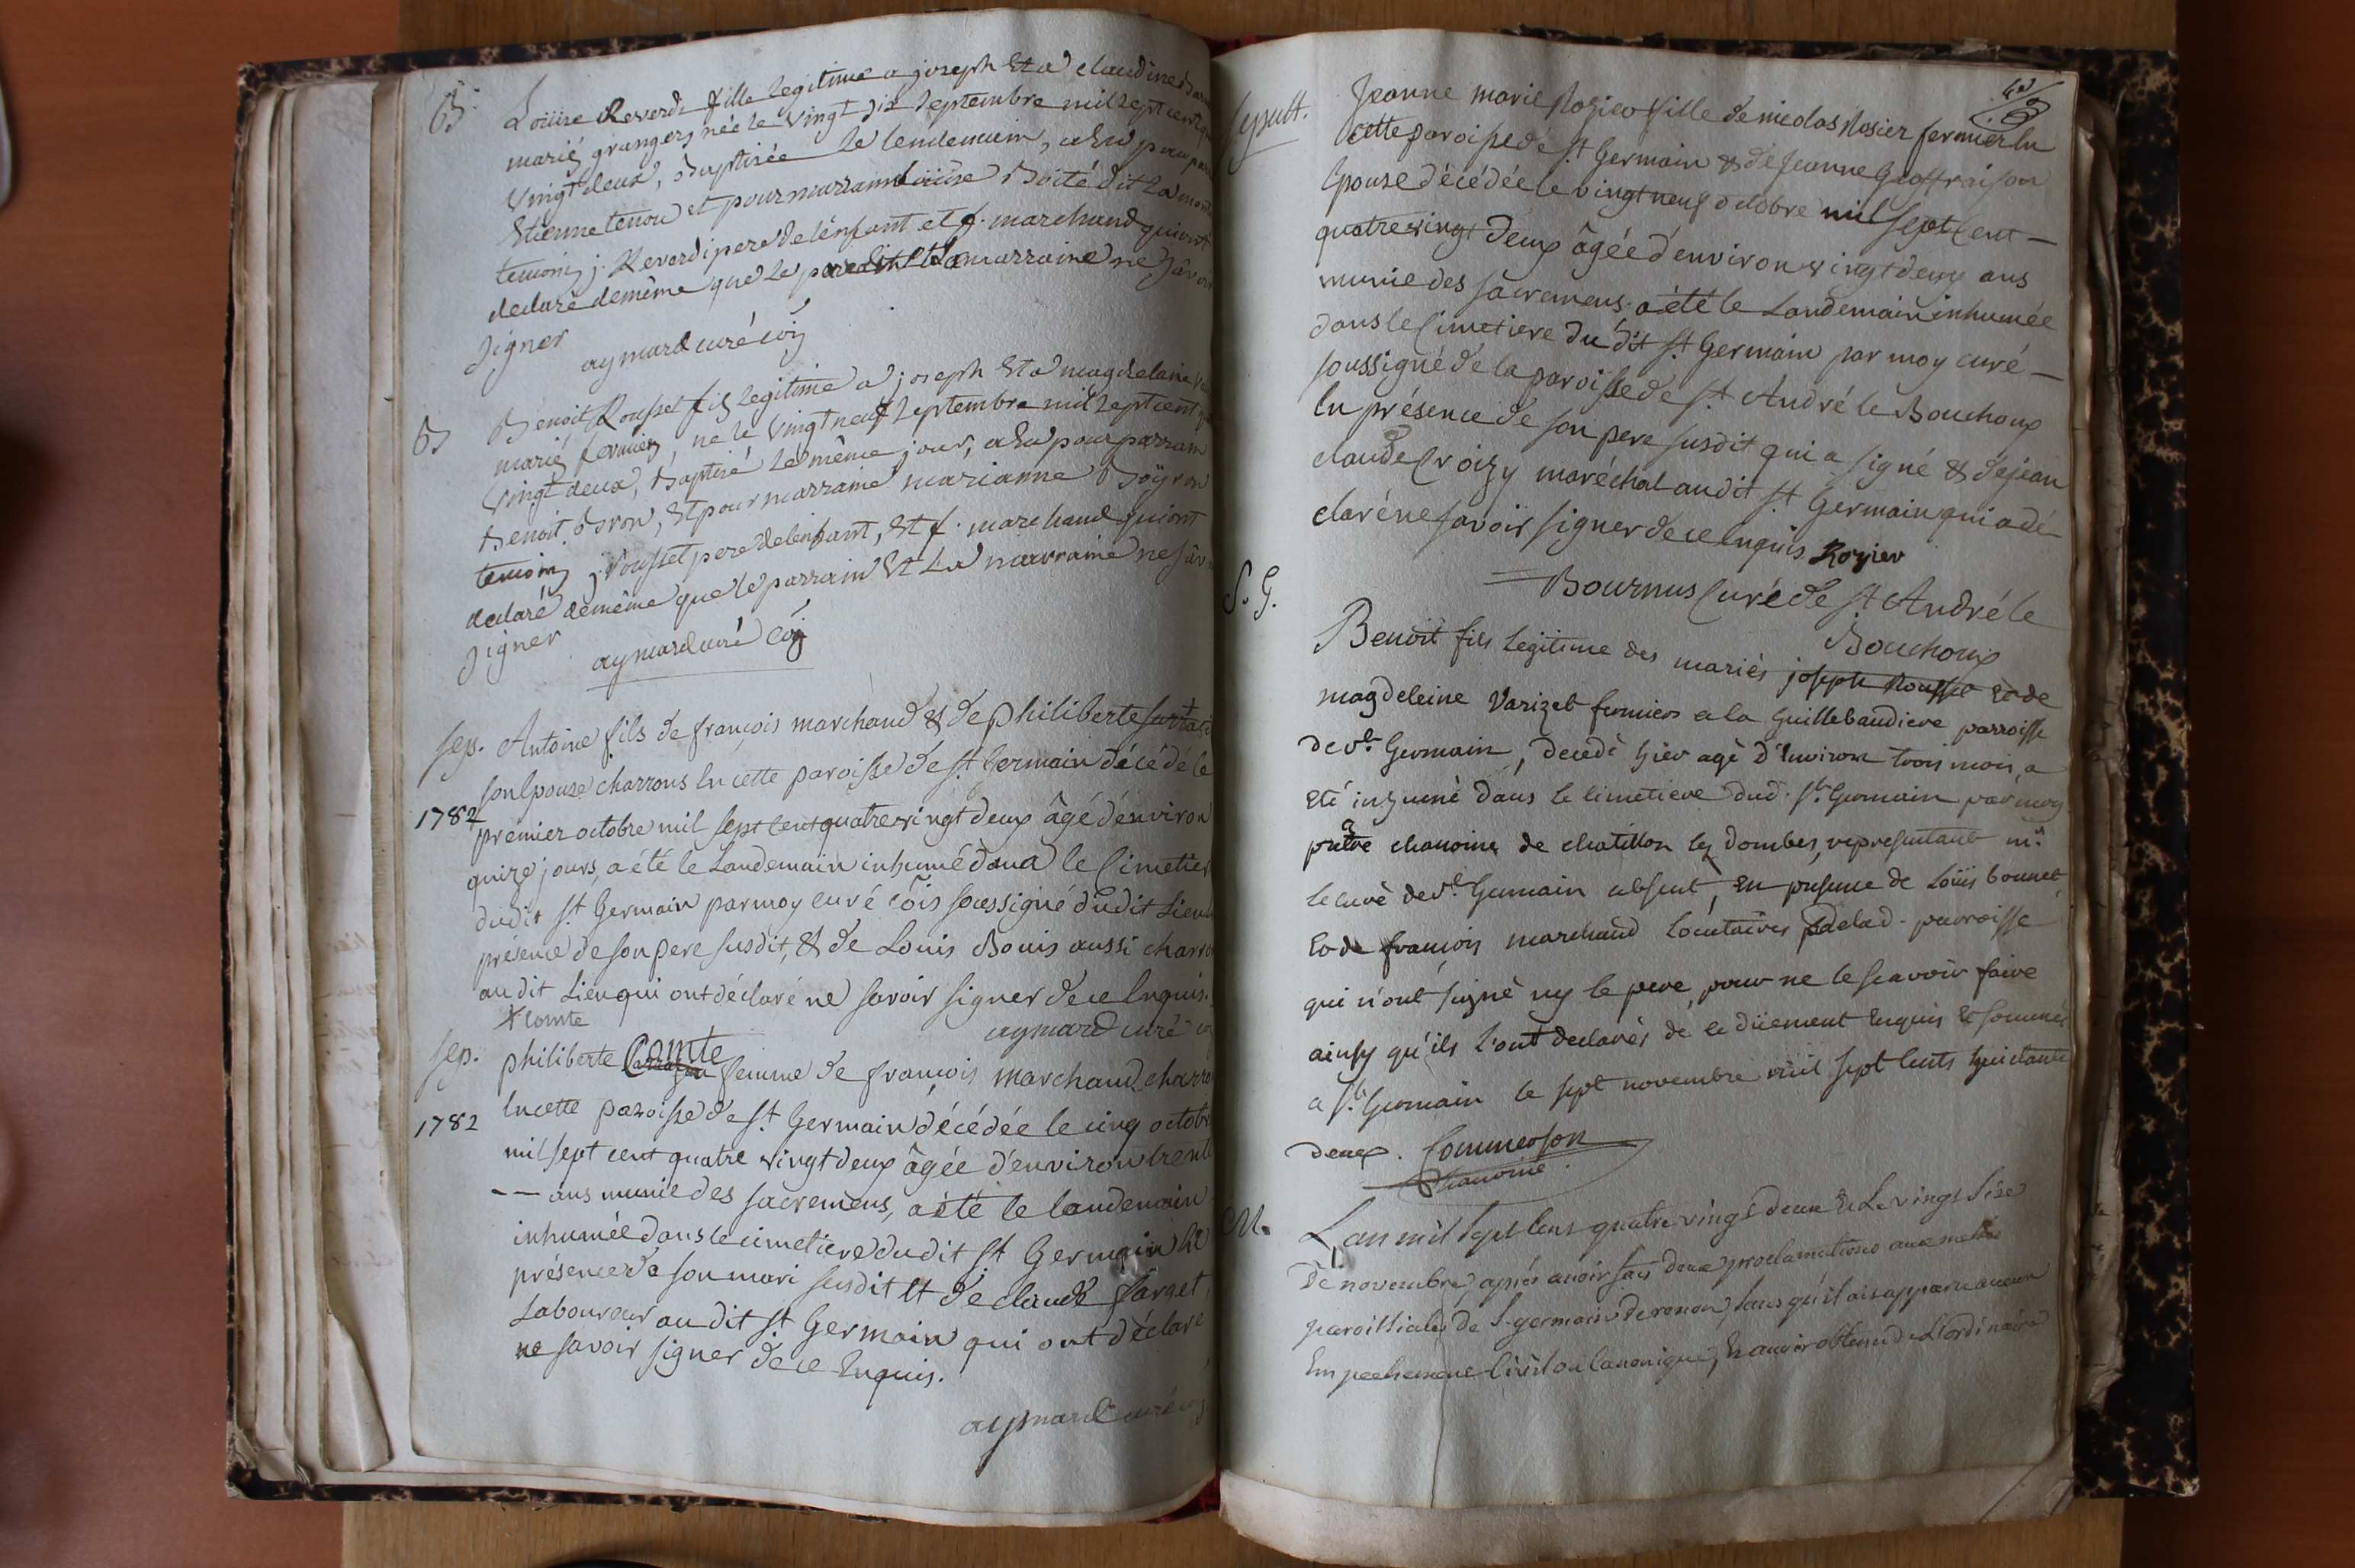 B.
Loüise Reverdi fille legitime a joseph Et a claudine
mariés grangers née le vingt six Septembre mil Sept cent
vingt deux, Baptisée le lendemain, a Eu pour
Etienne tenon et pour marraine Loüise Boité dit La
temoins j. Reverdi pere de lenfant et f. marchand qui ont
declaré de même que Le Et La marraine ne Sâvoir
Signer
aymard curé
B
Benoit Rousset fils Legitime a joseph Et a magdelaine
mariés fermiers, ne le vingt neuf Septembre mil Sept cent
vingt deux, Baptisé Le même jour, a Eu pour parrain
Benoit, Et pour marraine marianne Boÿron
temoins j. Rousset pere de lenfant, Et f. marchand qui ont
declaré de même que le parrain Et La marraine ne Sâv
Signer
aymard curé
sep. Antoine fils de françois marchand & de philiberte
son Epouse charrons En cette paroisse de St Germain décédé le
1782
premier octobre mil Sept Cent quatre vingt deux âgé d'environ
quize jours, a été le Landemain inhumé dans le Cimetier
dudit St Germain par moy curé soussigné dudit Lieu
présence de son pere susdit, & de Louis Bouis aussi charro
au dit Lieu qui ont déclaré ne savoir signer de ce Enquis.
Comte
aymard curé
sep.
philiberte Comte femme de françois marchand charro
En cette paroisse de St Germain décédée le cinq octobr
1782
mil sept cent quatre vingt deux âgée d'environ trente
-- ans munie des sacremens, a été le landemain
inhumée dans le cimetiere dudit St Germain
présence de son mari susdit Et de claude farget,
Laboureur au dit St Germain qui ont déclaré
ne savoir signer de ce Enquis.
aymard curé
sepult.
Jeanne marie Rozier fille de nicolas Rosier fermier En
cette paroisse de St Germain & de Jeanne Geoffraison
Epouse décédée le vingt neuf octobre mil sept Cent —
quatre vingt deux âgée d'environ vingt deux ans
munie des sacremens a été le Landemain inhumée
dans le Cimetiere du dit St Germain par moy curé —
soussigné de la paroisse de St André le Bouchoux
En présence de son pere susdit qui a signé & de jean
claude Croizy maréchal audit St Germain qui a dé
claré ne savoir signer de ce Enquis Rozier
Bournus Curé de St André le
Bouchoux
S. G.
Benoit fils legitime des mariés joseph Rousset et de
magdeleine Varizet fermiers a la Guillebaudiere parroisse
de St Germain, decedé hier agé d'Environ trois mois, a
eté inhumé dans le Cimetiere dud. St Germain par moy
pretre chanoine de chatillon les Dombes, representant mr
le curé de St Germain absent, En presence de Loüis bonnet
et de françois marchand locataires de lad. parroisse
qui n'ont signé ny le pere, pour ne le scavoir faire
ainsy qu'ils l'ont declarés de ce düement Enquis et sommés
a St Germain le sept novembre mil sept cents huictante
deux. Commerson
Chanoine.
M.
L'an mil sept cens quatre vingt deux & Le vingt sise
De novembre, aprés avoir fais deux proclamations aux messes
paroissiales de S. germain de renon, sans qu'il ait apparu aucun
Empechement Civil ou Canonique, & avoir obtenu de L'ordinaire